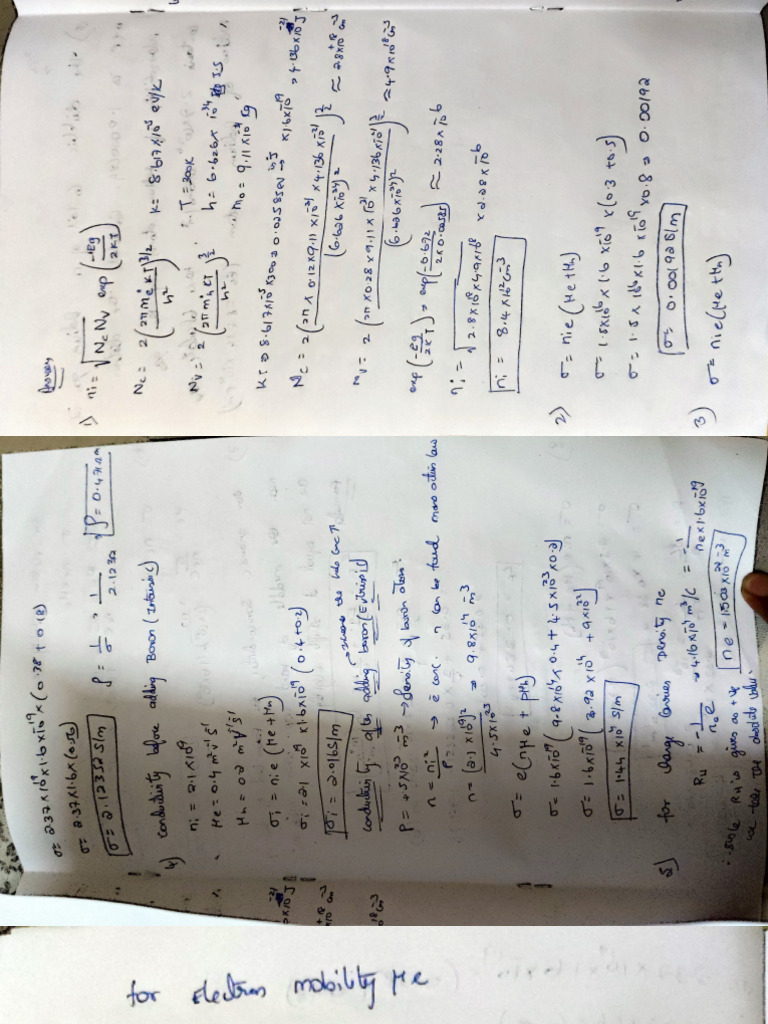 Answers
1) ni = √NcNv exp(-Eg/2KT)
Nc = 2(2πme*KT/h²)^3/2 K = 8.617x10^-5 eV/K
T = 300K
Nv = 2(2πmh*KT/h²)^3/2 h = 6.626x10^-34 J.S
mo = 9.11x10^-31 kg
KT => 8.617x10^-5 x300 => 0.02585eV → x1.6x10^-19 => 4.136x10^-21 J
Nc = 2(2π x 0.12x9.11x10^-31 x 4.136x10^-21/(6.626x10^-34)²)^3/2 ≈ 2.8x10^+18 cm^-3
Nv = 2(2π x0.28x9.11x10^-31 x4.136x10^-21/(6.626x10^-34)²)^3/2 ≈ 4.9x10^18 cm^-3
exp(-Eg/2KT) => exp(-0.672/2x0.02585) ≈ 2.28x10^-6
ni = √2.8x10^18 x4.9x10^18 x2.28x10^-6
ni = 8.4x10^12 cm^-3
2) σ = nie(μe+μh)
σ = 1.5x10^16 x1.6x10^-19 x(0.3+0.5)
σ = 1.5x10^16x1.6x10^-19x0.8 = 0.00192
σ = 0.00192 S/m
3) σ = nie(μe+μh)
σ = 2.37x10^19x1.6x10^-19x(0.38+0.18)
σ = 2.37x1.6x(0.56) ρ = 1/σ => 1/2.1232
σ = 2.12352 S/m ρ = 0.47Ωm
4) Conductivity before adding Boron (Intrinsic)
ni = 2.1x10^19
μe = 0.4m²v^-1s^-1
μh = 0.2 m²v^-1s^-1
σi = nie(μe+μh)
σi = 2.1 x10^19 x1.6x10^-19 (0.4+0.2)
σi = 2.016S/m
Conductivity after adding boron (Extrinsic)
P = 4.5x10^23 m^-3 → density of boron atom.
n = ni²/P → e^- conc. n can be found mass action law
n = (2.1x10^19)²/4.5x10^23 => 9.8x10^14 m^-3
σ = e(nμe + pμh)
σ = 1.6x10^-19(9.8x10^14x0.4 + 4.5x10^23x0.2)
σ = 1.6x10^-19(3.92 x10^14 + 9x10^22)
σ = 1.44 x10^4 S/m
5) for charge carrier Density ne
RH = -1/noe => 4.16x10^-4 m³/C = -1/nex1.6x10^-19
ne = 1.503x10^22 m^-3
∴ since RH is given as +ve
we take the absolute value.
for electron mobility μe